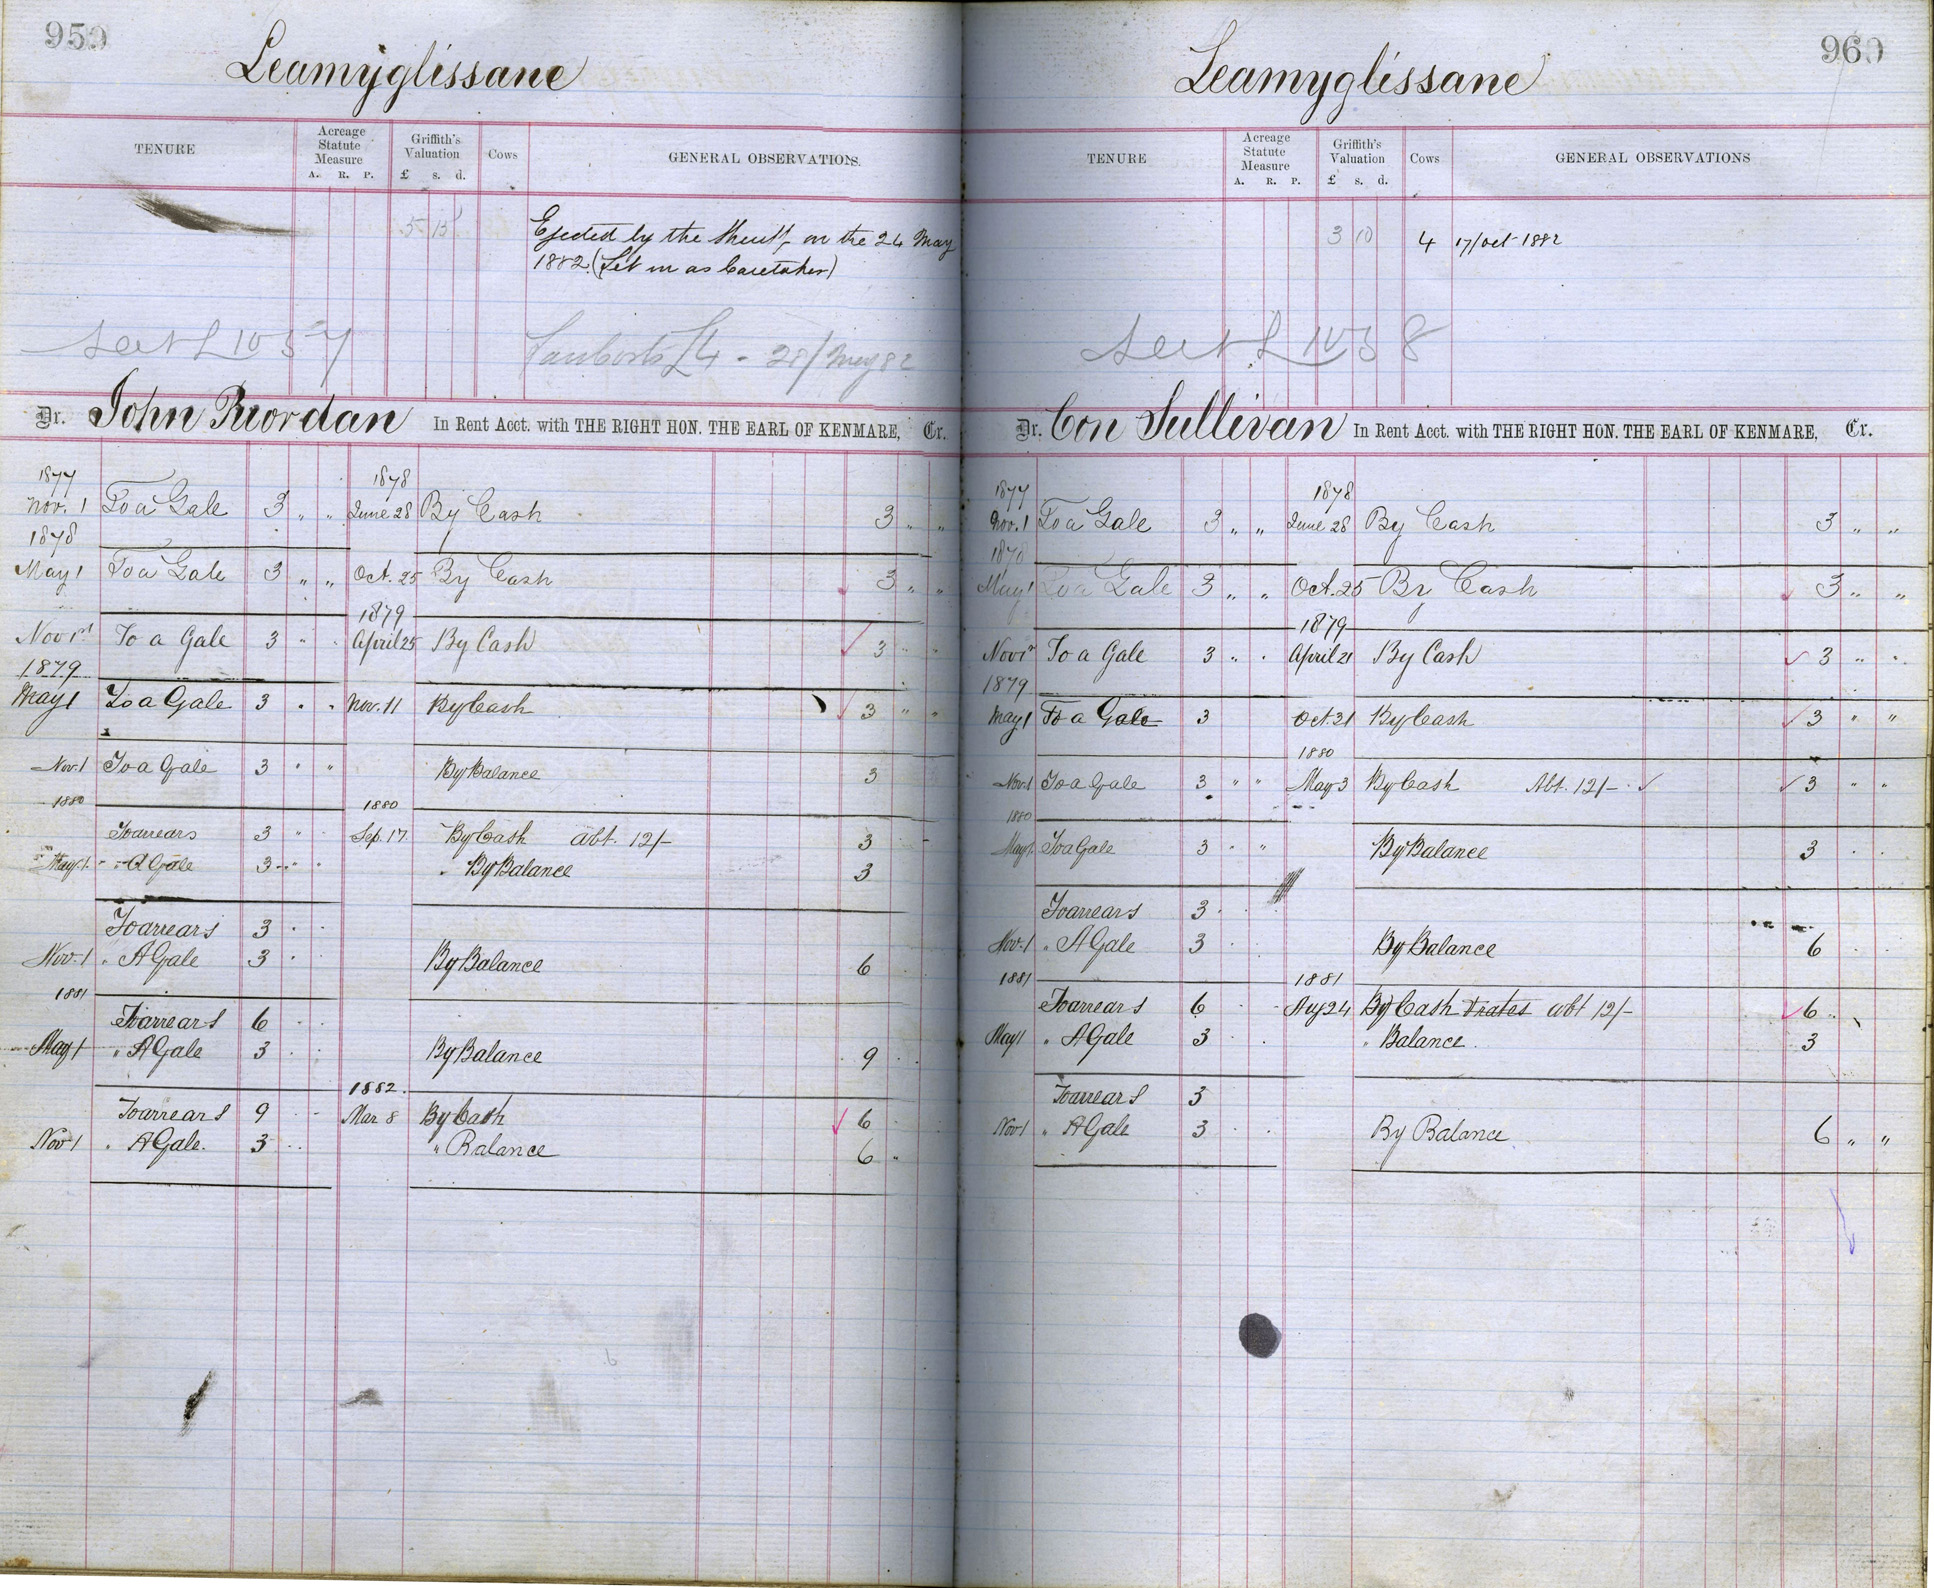 959
Leamyglissane
TENURE
Acreage Statute Measure
A. R. P.
Griffith's Valuation
£ s. d.
Cows
GENERAL OBSERVATIONS.
5 15
Ejected by the Sheriff on the 24 May
1882 (Let in as Caretaker)
28/May 82
Dr. John Riordan In Rent Acct. with THE RIGHT HON. THE EARL OF KENMARE, Cr.
1877 1878
Nov. 1 To a Gale 3 " " June 28 By Cash 3 " "
1878
May 1 To a Gale 3 " " Oct. 25 By Cash 3 " "
1879
Nov 1st To a Gale 3 " " April 25 By Cash 3 " "
1879
May 1 To a Gale 3 " " Nov. 11 By Cash 3 " "
Nov. 1 To a Gale 3 " " By Balance 3
1880 1880
To arrears 3 " Sep. 17 By Cash abt. 12/- 3
May 1 " A Gale 3 " " " By Balance 3
To arrears 3
Nov. 1 " A Gale 3 By Balance 6
1881
To arrears 6
May 1 " A Gale 3 By Balance 9
1882
To arrears 9 Mar 8 By Cash 6
Nov 1 " A Gale. 3 " Balance 6 "
960
Leamyglissane
TENURE
Acreage Statute Measure
A. R. P.
Griffith's Valuation
£ s. d.
Cows
GENERAL OBSERVATIONS
3 10 4 17/Oct 1882
Dr. Con Sullivan In Rent Acct. with THE RIGHT HON. THE EARL OF KENMARE, Cr.
1877 1878
Nov. 1 To a Gale 3 " " June 28 By Cash 3 " "
1878
May 1 To a Gale 3 " " Oct. 25 By Cash 3 " "
1879
Nov 1st To a Gale 3 " " April 21 By Cash 3 " "
1879
May 1 To a Gale 3 Oct. 31 By Cash 3 " "
1880
Nov. 1 To a Gale 3 " " May 3 By Cash Abt. 12/- 3 " "
1880
May 1 To a Gale 3 " " By Balance 3
To arrears 3
Nov. 1 " A Gale 3 By Balance 6
1881 1881
To arrears 6 Aug 24 By Cash abt 12/- 6
May 1 " A Gale 3 " Balance 3
To arrears 3
Nov 1 " A Gale 3 By Balance 6 " "